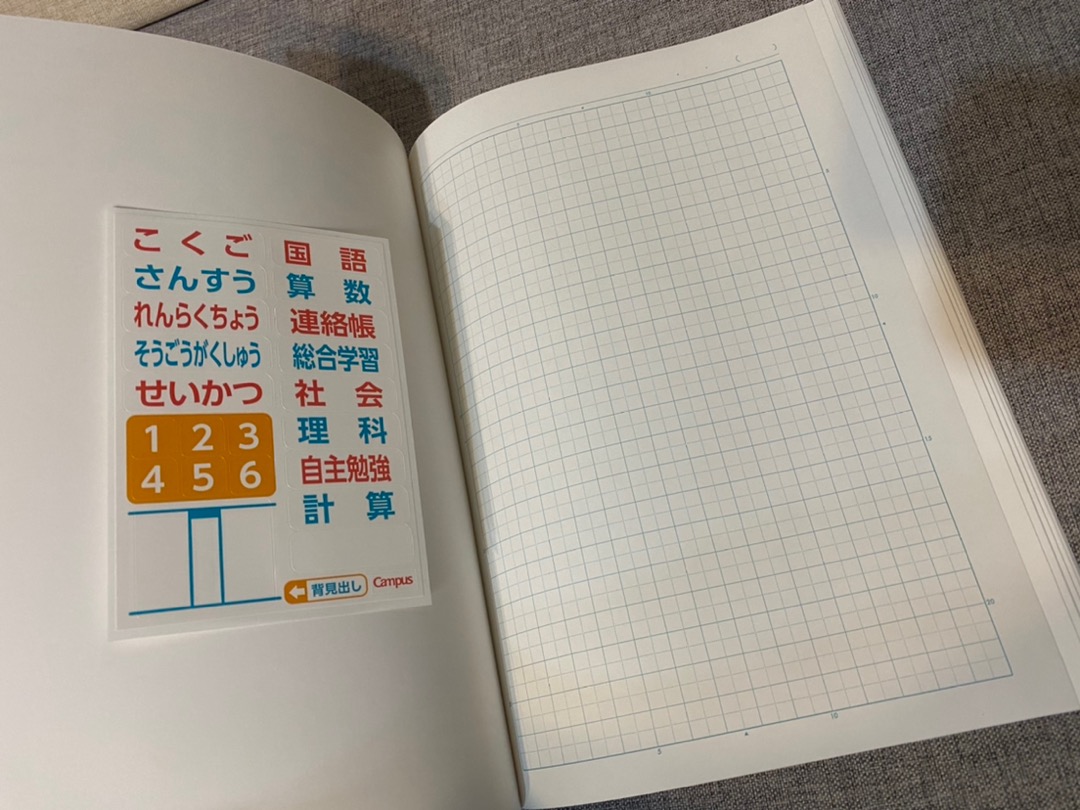 こくご
さんすう
れんらくちょう
そうごうがくしゅう
せいかつ
1 2 3
4 5 6
国語
算数
連絡帳
総合学習
社会
理科
自主勉強
計算
背見出し
Campus
5
10
15
20
5
10